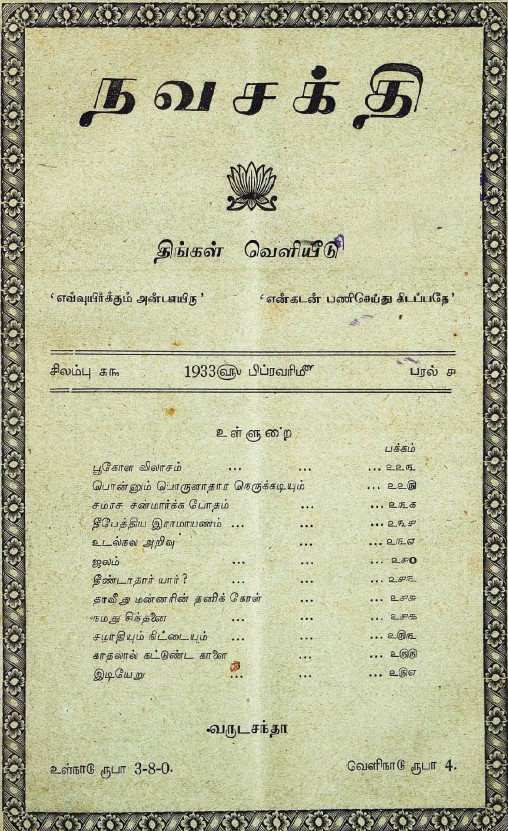 நவசக்தி
திங்கள் வெளியீடு
‘எவ்வுயிர்க்கும் அன்பாயிரு’ ‘என்கடன் பணிசெய்து கிடப்பதே’
சிலம்பு ௧௩ 1933௵ பிப்ரவரி௴ பரல் ௪
உள்ளுறை
பக்கம்
பூகோள விலாசம் ... ... ... ௨௨௩
பொன்னும் பொருளாதார நெருக்கடியும் ... ௨௨௫
சமரச சன்மார்க்க போதம் ... ... ௨௩௧
தீபேத்திய இராமாயணம் ... ... ... ௨௩௪
உடல்நல அறிவு ... ... ௨௩௭
ஜலம் ... ... ... ௨௪0
தீண்டாதார் யார்? ... ... ... ௨௪௩
தாவீது மன்னரின் தனிக் கோள் ... ... ௨௪௬
நமது சிந்தனை ... ... ... ௨௪௯
சமாதியும் நிட்டையும் ... ... ... ௨௫௩
காதலால் கட்டுண்ட காளை ... ... ௨௫௫
இடியேறு ... ... ... ௨௫௭
வருடசந்தா
உள்நாடு ரூபா 3-8-0. வெளிநாடு ரூபா 4.